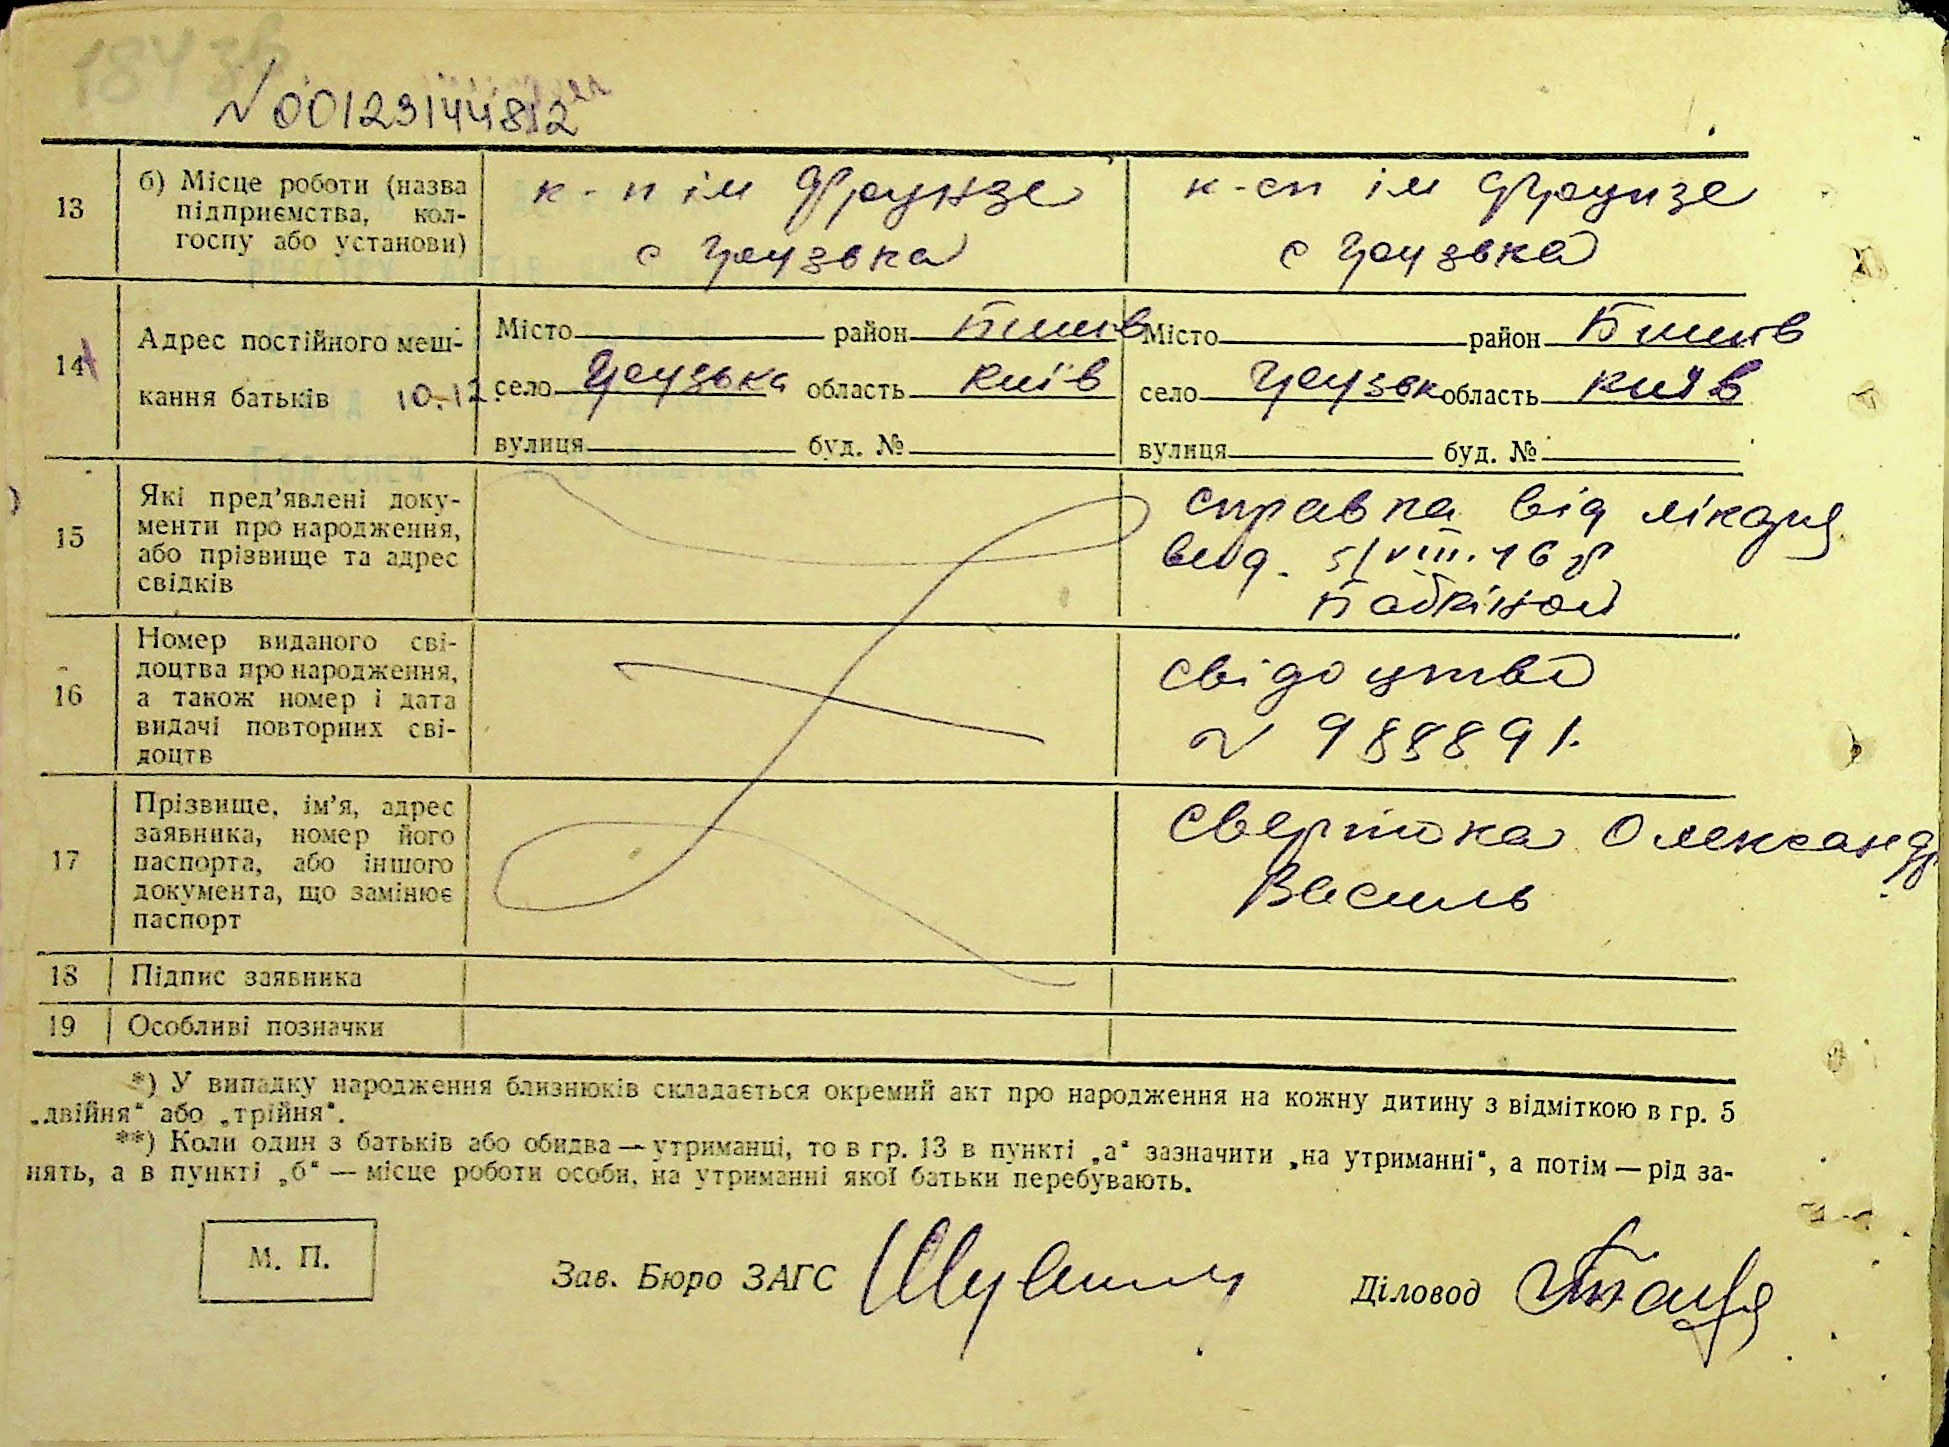 184 зв
№ 00123144812
13 б) Місце роботи (назва підприємства, кол-
госпу або установи)
к-п ім Фрунзе
с Грузька
к-сп ім Фрунзе
с Грузька
14 Адрес постійного меш-
кання батьків 10.12.
Місто район Бишів
село Грузька область Київ
вулиця буд. №
Місто район Бишів
село Грузьк область Київ
вулиця буд. №
15 Які пред'явлені доку-
менти про народження,
або прізвище та адрес
свідків
справка від лікаря
вид. 5/VIII.46 р
16 Номер виданого сві-
доцтва про народження,
а також номер і дата
видачі повторних сві-
доцтв
свідоцтво
№ 988891.
17 Прізвище, ім'я, адрес
заявника, номер його
паспорта, або іншого
документа, що замінює
паспорт
Свертока Олександр
Василь
18 Підпис заявника
19 Особливі позначки
*) У випадку народження близнюків складається окремий акт про народження на кожну дитину з відміткою в гр. 5
„двійня“ або „трійня“.
**) Коли один з батьків або обидва — утриманці, то в гр. 13 в пункті „а“ зазначити „на утриманні“, а потім — рід за-
нять, а в пункті „б“ — місце роботи особи, на утриманні якої батьки перебувають.
М. П.
Зав. Бюро ЗАГС
Діловод